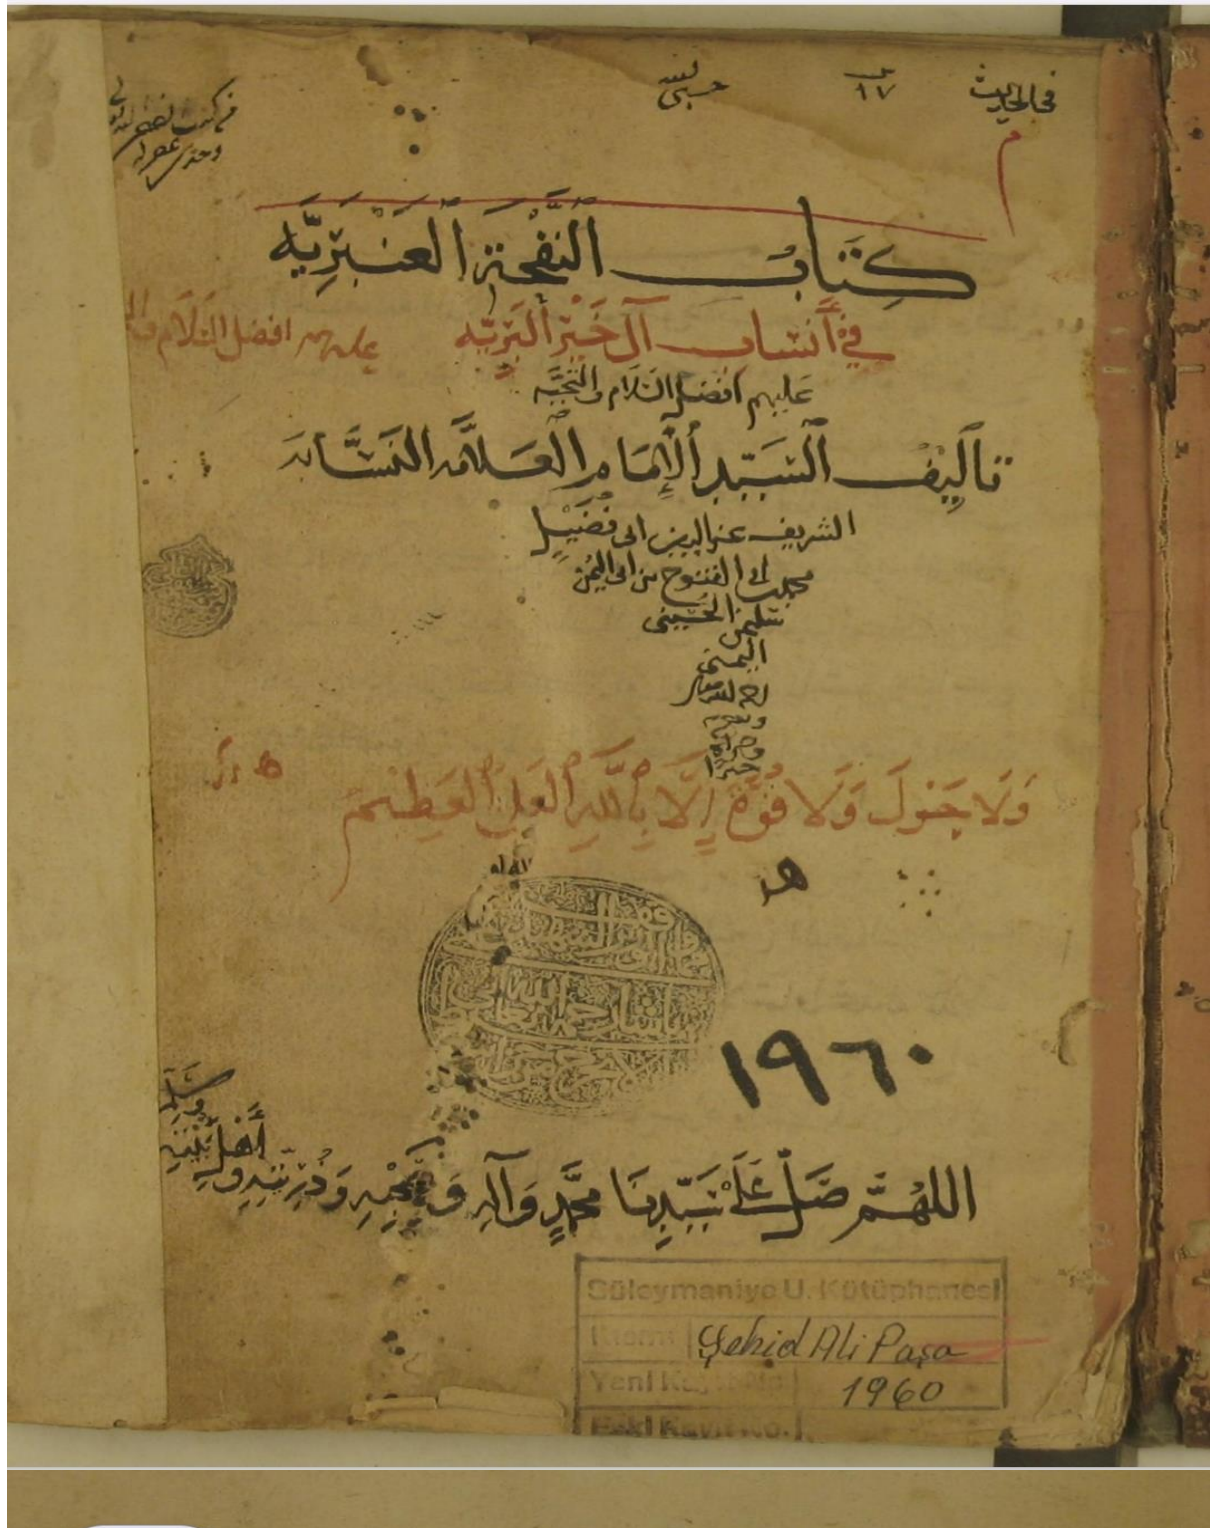 في الحديث
١٧
حسبي الله
كِتَابُ النَّفْحَةِ الْعَنْبَرِيَّه
فِي أَنْسَابِ آلِ خَيْرِ الْبَرِيَّه
عليهم افضل السَّلَام
عليهم افضل السَّلَام والتَّحِيَّه
تَأْلِيفُ السَّيِّدِ الْإِمَامِ الْعَلَّامه النَّسَّابَه
الشريف عزالدين ابى فُضَيْلٍ
محمد بن ابى الفتوح بن ابى اليُمْن
سليمن الحُسَيني
اليمني
رحمه الله
وَلَا حَوْلَ وَلَا قُوَّةَ إِلَّا بِاللَّهِ الْعَلِيِّ الْعَظِيمِ
وقف
الوزير الشهيد علي
باشا رحمه الله تعالى
١٩٦٠
اللهُمَّ صَلِّ عَلَى سَيِّدِنَا مُحَمَّدٍ وَآلِهِ وَصَحْبِهِ وَذُرِّيَّتِهِ وَ
أَهْلِ بَيْتِهِ
وسلم
Süleymaniye U. Kütüphanesi
Kısmı Şehid Ali Paşa
Yeni Kayıt No. 1960
Eski Kayıt No.